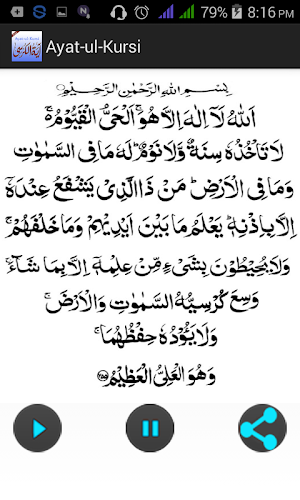 79% 8:16 PM
Ayat-ul-Kursi
بِسْمِ اللهِ الرَّحْمٰنِ الرَّحِيْمِ
اَللهُ لَآ اِلٰهَ اِلَّا هُوَ ۚ اَلْحَيُّ الْقَيُّوْمُ ۚ
لَا تَاْخُذُهٗ سِنَةٌ وَّلَا نَوْمٌ ؕ لَهٗ مَا فِى السَّمٰوٰتِ
وَمَا فِى الْاَرْضِ ؕ مَنْ ذَا الَّذِىْ يَشْفَعُ عِنْدَهٗٓ
اِلَّا بِاِذْنِهٖ ؕ يَعْلَمُ مَا بَيْنَ اَيْدِيْهِمْ وَمَا خَلْفَهُمْ ۚ
وَلَا يُحِيْطُوْنَ بِشَىْءٍ مِّنْ عِلْمِهٖٓ اِلَّا بِمَا شَآءَ ۚ
وَسِعَ كُرْسِيُّهُ السَّمٰوٰتِ وَالْاَرْضَ ۚ
وَلَا يَـُٔوْدُهٗ حِفْظُهُمَا ۚ
وَهُوَ الْعَلِىُّ الْعَظِيْمُ ﴿۲۵۵﴾